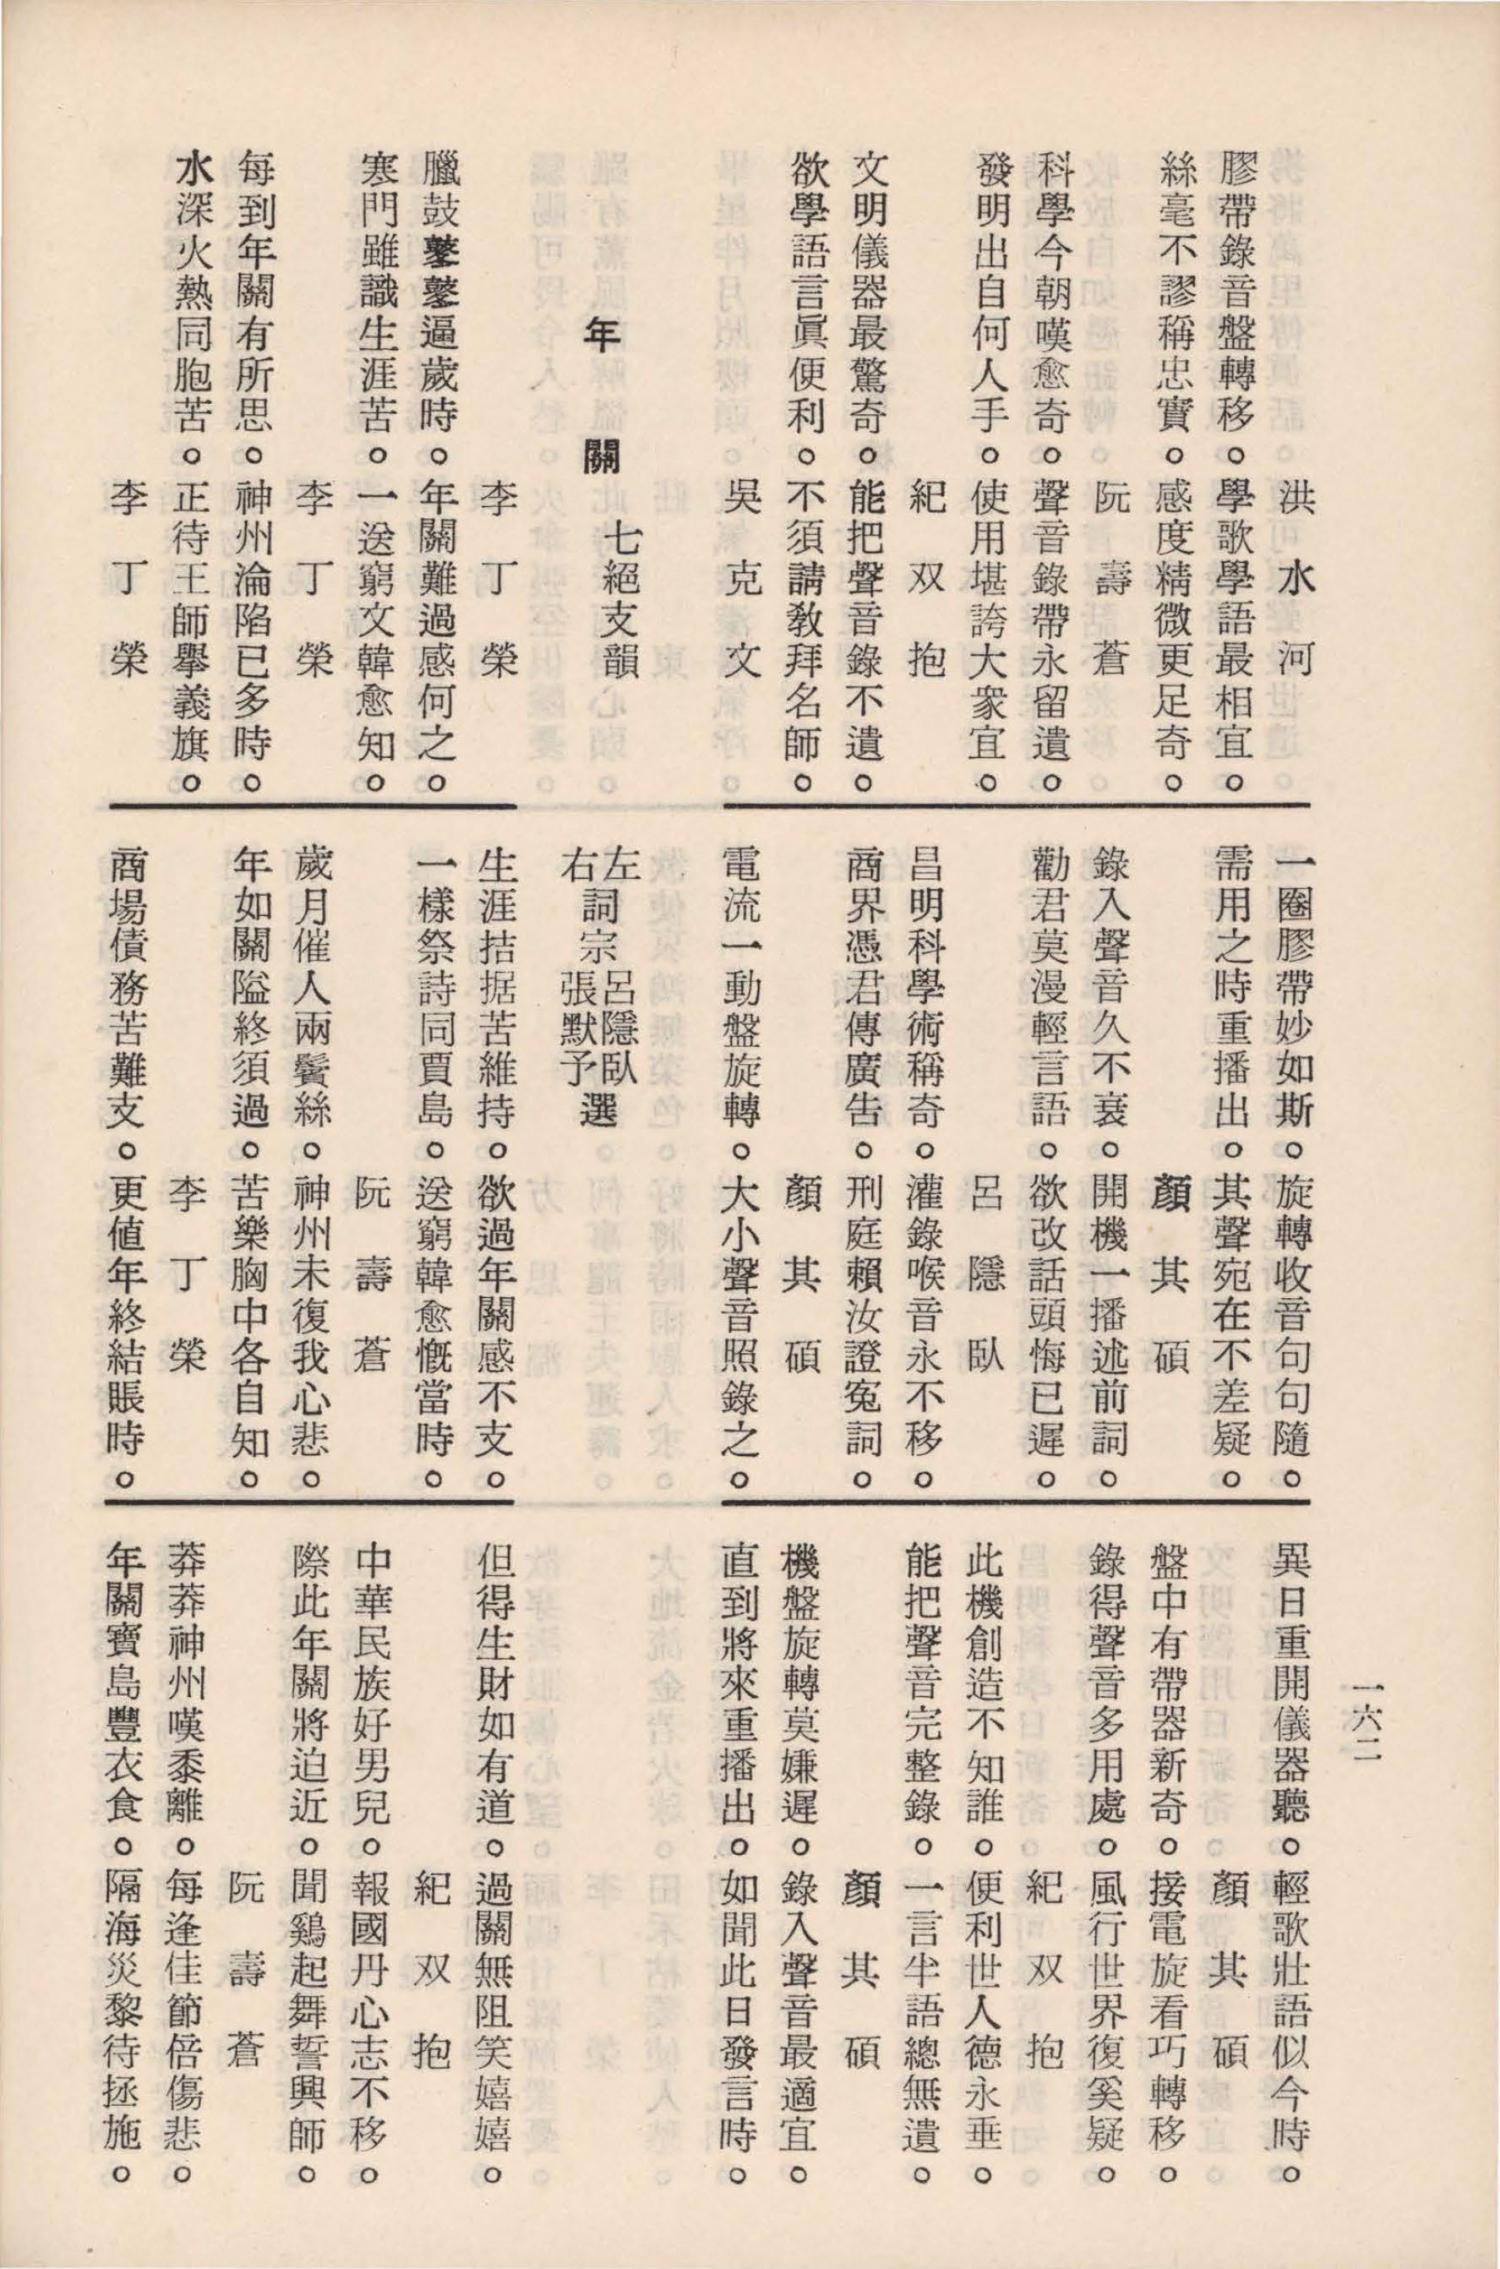 一六二
洪水河
膠帶錄音盤轉移。學歌學語最相宜。
絲毫不謬稱忠實。感度精微更足奇。
阮壽蒼
科學今朝嘆愈奇。聲音錄帶永留遺。
發明出自何人手。使用堪誇大衆宜。
紀双抱
文明儀器最驚奇。能把聲音錄不遺。
欲學語言眞便利。不須請教拜名師。
吳克文
一圈膠帶妙如斯。旋轉收音句句隨。
需用之時重播出。其聲宛在不差疑。
顏其碩
錄入聲音久不衰。開機一播述前詞。
勸君莫漫輕言語。欲改話頭悔已遲。
呂隱臥
昌明科學術稱奇。灌錄喉音永不移。
商界憑君傳廣告。刑庭賴汝證寃詞。
顏其碩
電流一動盤旋轉。大小聲音照錄之。
異日重開儀器聽。輕歌壯語似今時。
顏其碩
盤中有帶器新奇。接電旋看巧轉移。
錄得聲音多用處。風行世界復奚疑。
紀双抱
此機創造不知誰。便利世人德永垂。
能把聲音完整錄。一言半語總無遺。
顏其碩
機盤旋轉莫嫌遲。錄入聲音最適宜。
直到將來重播出。如聞此日發言時。
年關 七絕支韻
左詞宗呂隱臥選
右詞宗張默予選
李丁榮
臘鼓鼕鼕逼歲時。年關難過感何之。
寒門雖識生涯苦。一送窮文韓愈知。
李丁榮
每到年關有所思。神州淪陷已多時。
水深火熱同胞苦。正待王師舉義旗。
李丁榮
生涯拮据苦維持。欲過年關感不支。
一樣祭詩同賈島。送窮韓愈慨當時。
阮壽蒼
歲月催人兩鬢絲。神州未復我心悲。
年如關隘終須過。苦樂胸中各自知。
李丁榮
商場債務苦難支。更値年終結賬時。
但得生財如有道。過關無阻笑嬉嬉。
紀双抱
中華民族好男兒。報國丹心志不移。
際此年關將迫近。聞鷄起舞誓興師。
阮壽蒼
莽莽神州嘆黍離。每逢佳節倍傷悲。
年關寶島豐衣食。隔海災黎待拯施。